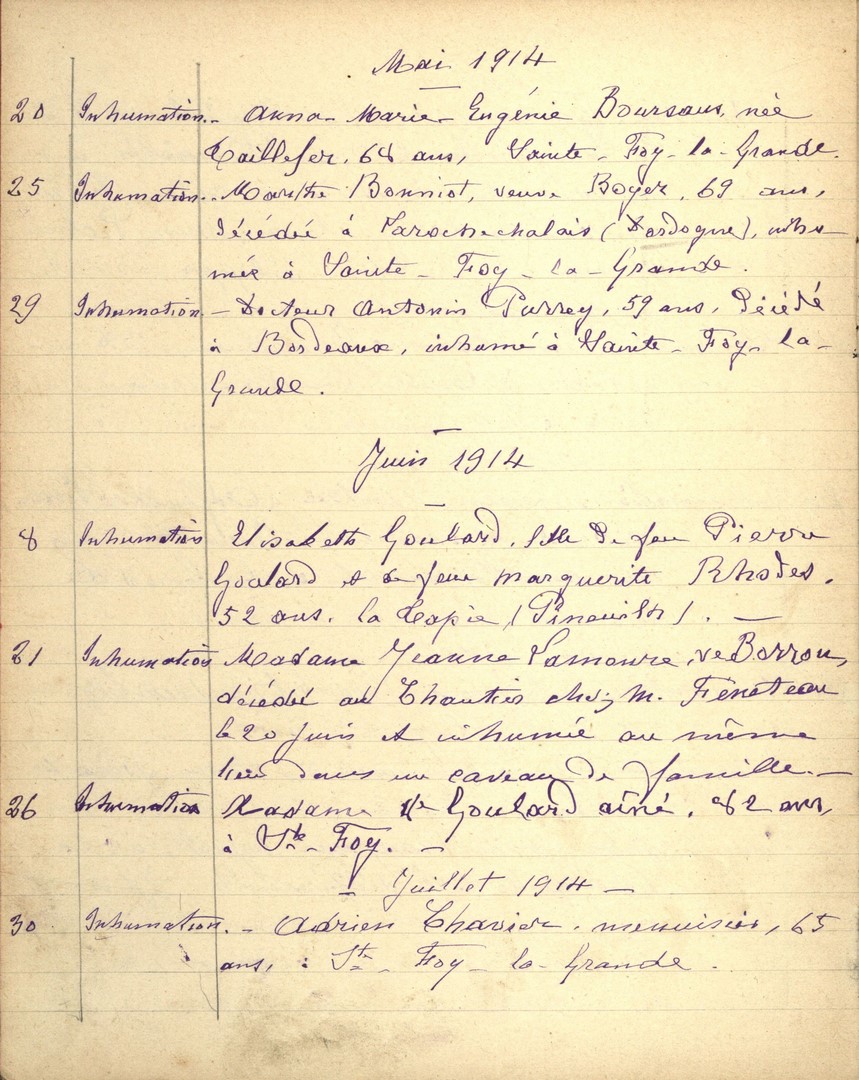 Mai 1914
20 Inhumation. - Anna - Marie - Eugénie Boursaus, née
Taillefer, 68 ans, Sainte - Foy - la - Grande.
25 Inhumation. - Marthe Bonniot, veuve Boyer, 69 ans,
Décédée à Larochechalais (Dordogne), inhu-
mée à Sainte - Foy - la - Grande.
29 Inhumation. - Docteur Antonin Purrey, 59 ans, Décédé
à Bordeaux, inhumé à Sainte - Foy - la -
Grande.
Juin 1914
8 Inhumation Elisabeth Goulard, fille de feu Pierre
Goulard et de feue Marguerite Rhodes.
52 ans. la Tapie (Pineuilh). -
21 Inhumation Madame Jeanne Lamoure, ve Borron,
décédée au Chautier chez M.
le 20 Juin et inhumée au même
lieu dans un caveau de famille. -
26 Inhumation Madame Ve Goulard aîné, 82 ans,
à Ste - Foy. -
- Juillet 1914 -
30 Inhumation. - Adrien Chavier, menuisier, 65
ans, à Ste - Foy - la - Grande.